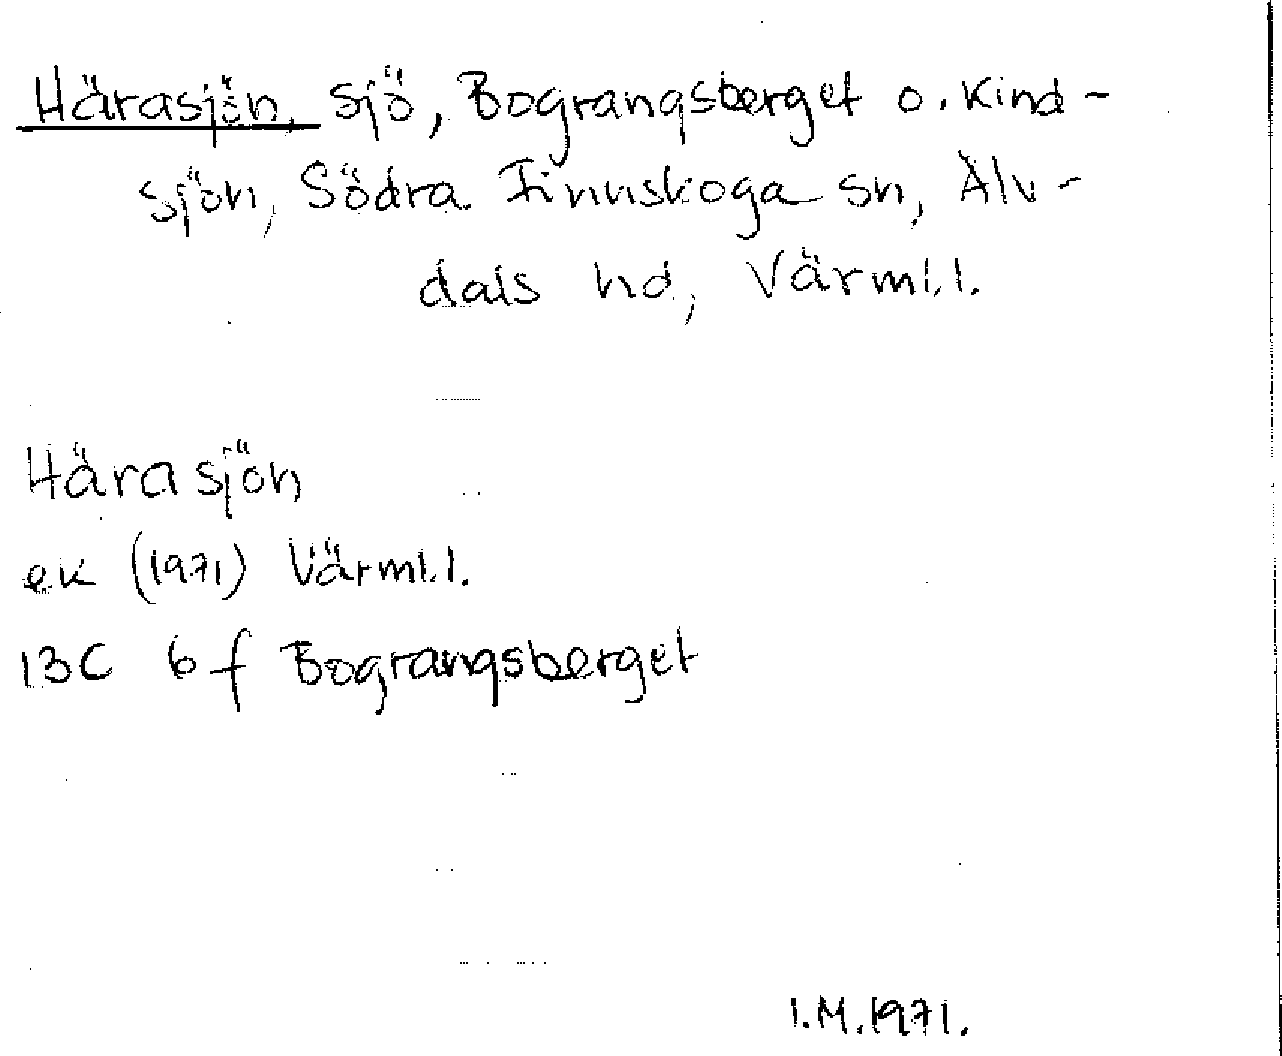 Härasjön, sjö, Bograngsberget o. Kind-
sjön, Södra Finnskoga sn, Älv-
dals hd, Värml.l.
Härasjön
ek (1971) Värml.l.
13C 6f Bograngsberget
I.M.1971.